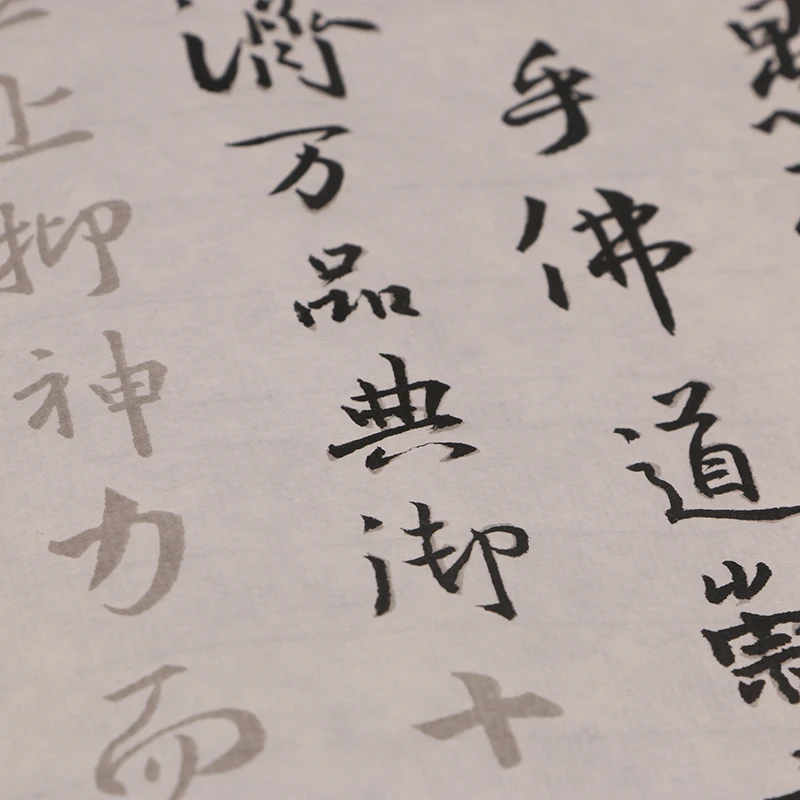 乎佛道崇
濟万品典御十
上抑神力而